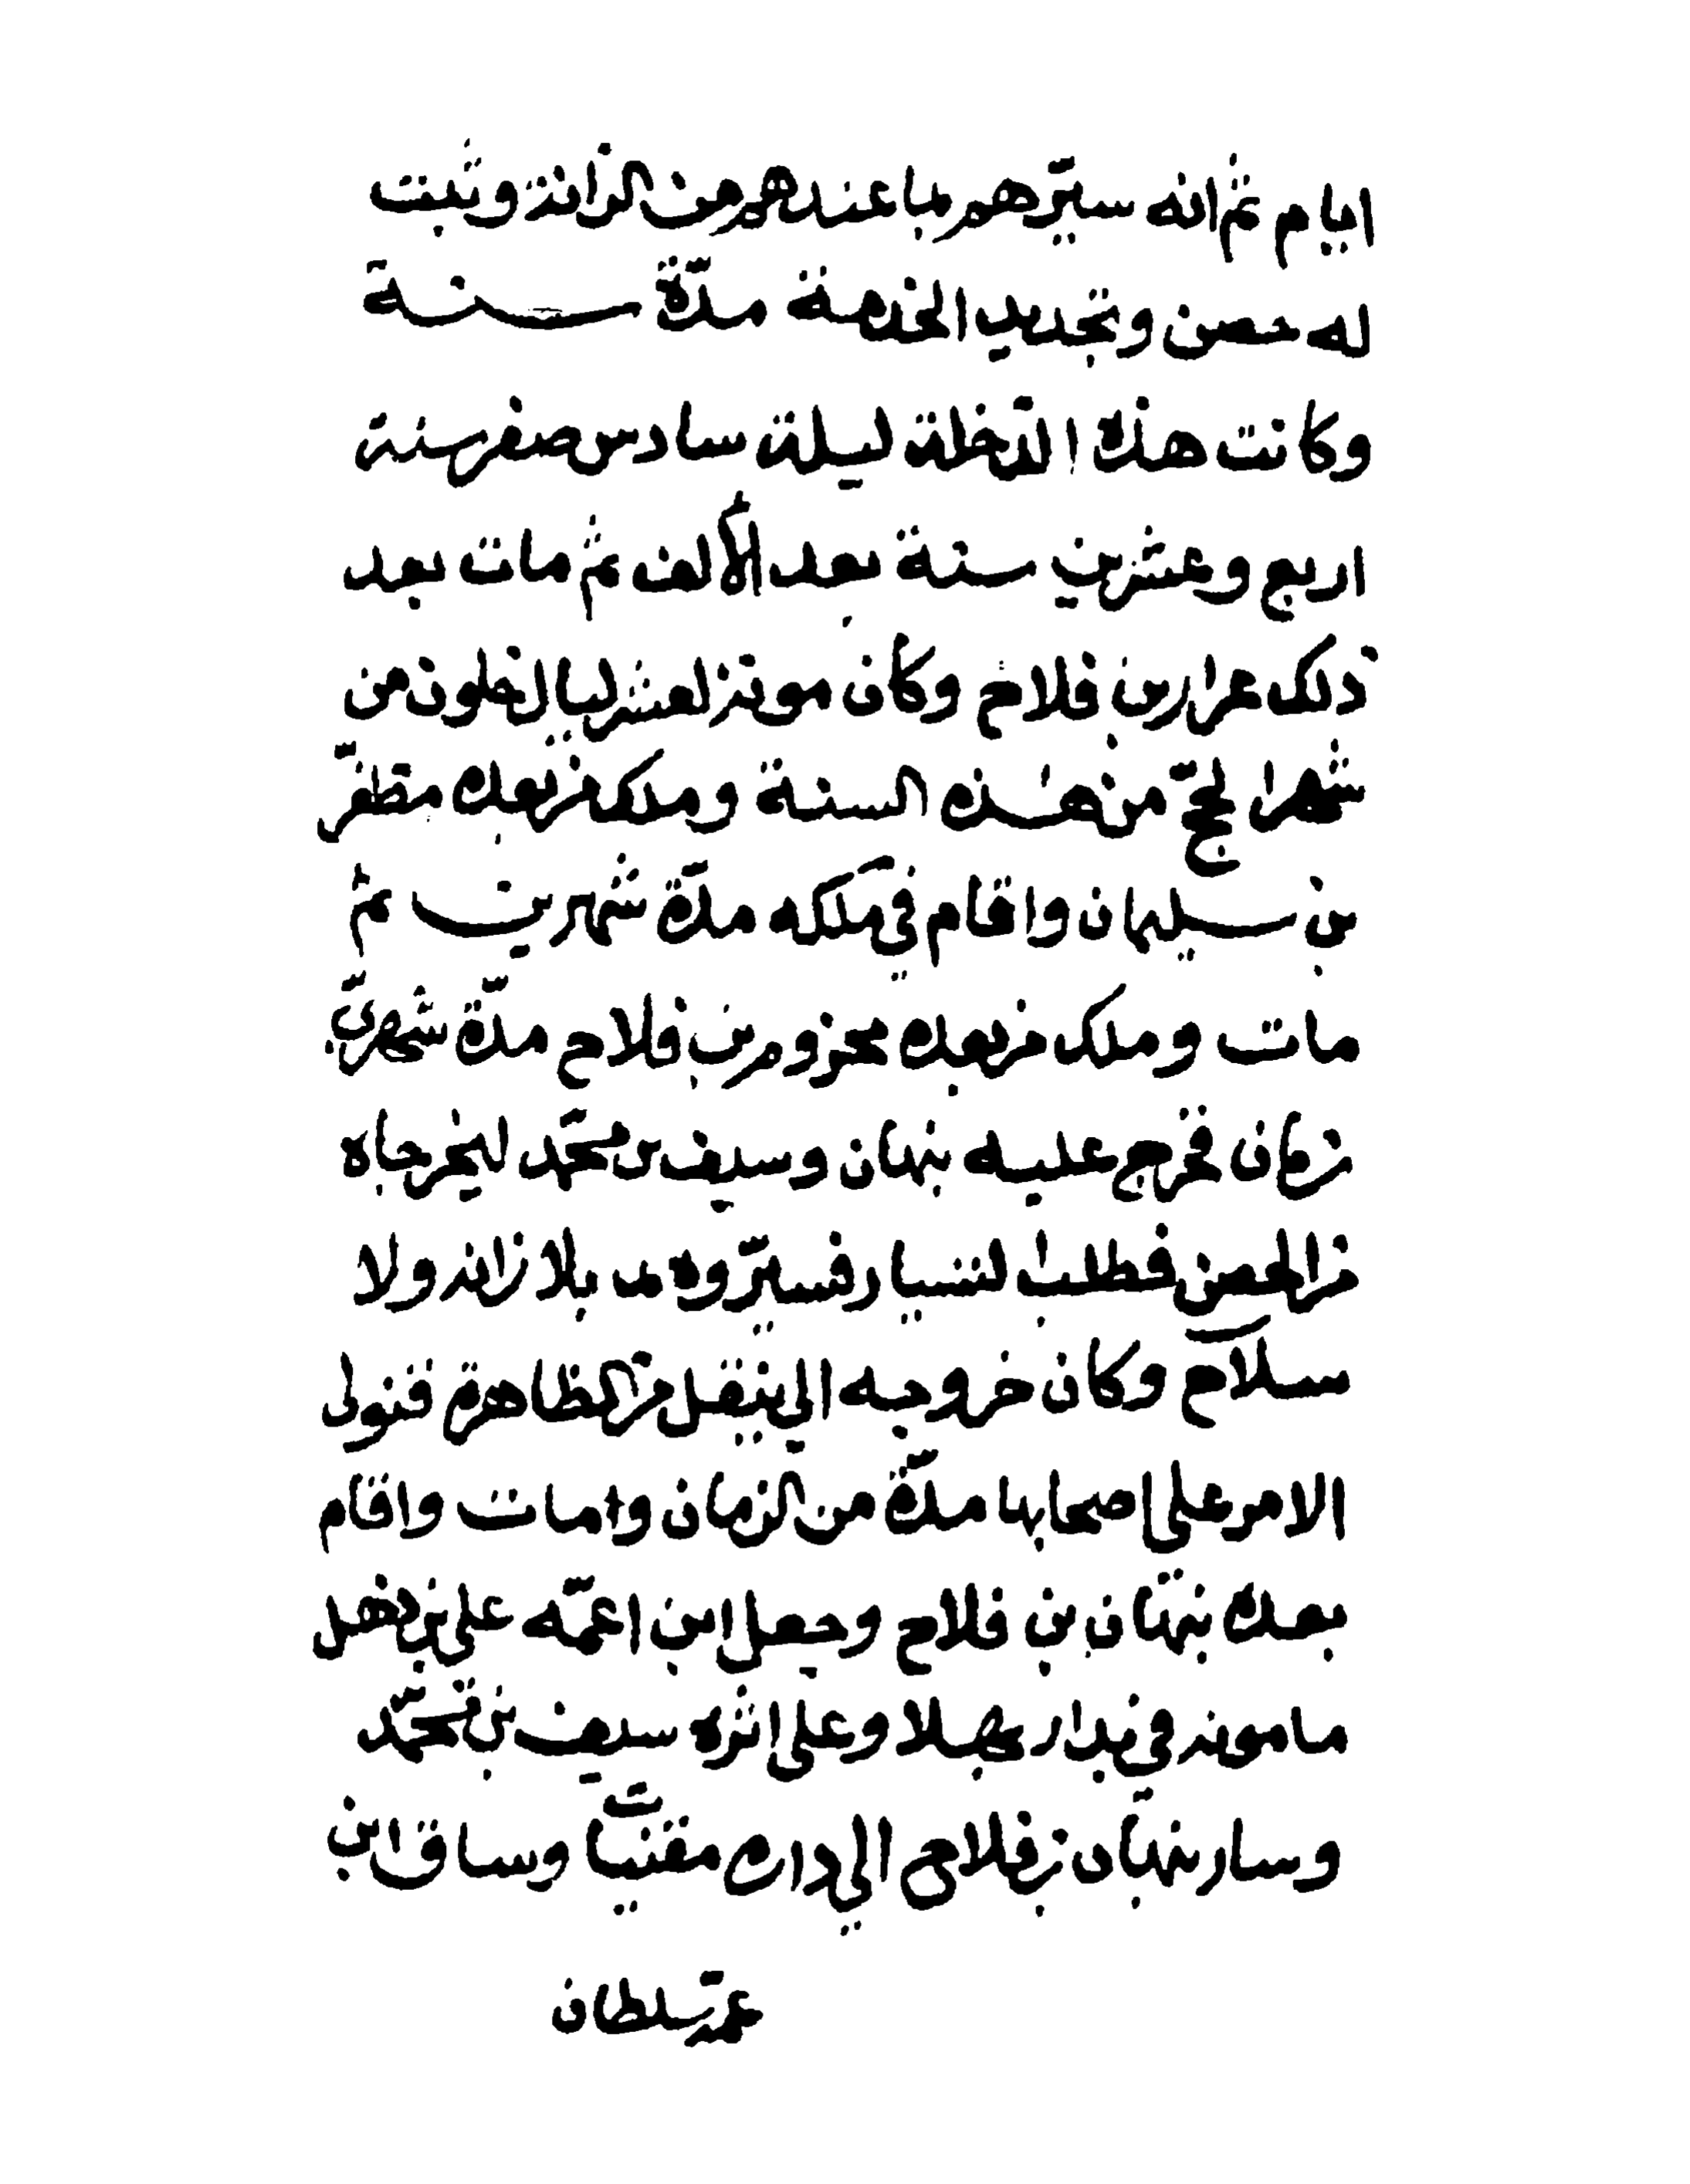 ايام ثم انه سيّرهم بما عندهم من الزانة وثبتت
له حصن وتجديد الخدمة مدّة سنة
وكانت هذه الدّخلة ليلة سادس صفر سنة
اربع وعشرين سنة بعد الألف ثم مات بعد
ذلك عرار بن فلاح وكان موته لعشر ليال خلون من
شهر الحجّ من هذه السنة وملك من بعده مظفّر
بن سليمان واقام في ملكه مدّة شهرين ثم
مات وملك من بعده مخزوم بن فلاح مدّة شهري
زمان فخرج عليه نبهان وسيف بن محمّد ليخرجاه
من الحصن فطلب التسيار فسيّروه بلا زانة ولا
سلاح وكان خروجه الى ينقل من الظاهرة فتولى
الامر على اصحابها مدّة من الزمان ومات واقام
بعده نبهان بن فلاح وجعل ابن عمّه علي بن ذهل
مامونه في بدار بهلا وعلى اثره سيف بن محمّد
وسار نبهان بن فلاح الى داره مقنيات وساق ابن
عمّه سلطان